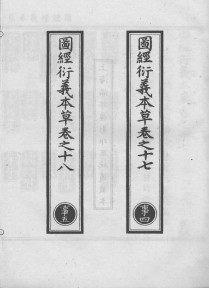 圖經衍義本草卷之十七
事四
圖經衍義本草卷之十八
事五